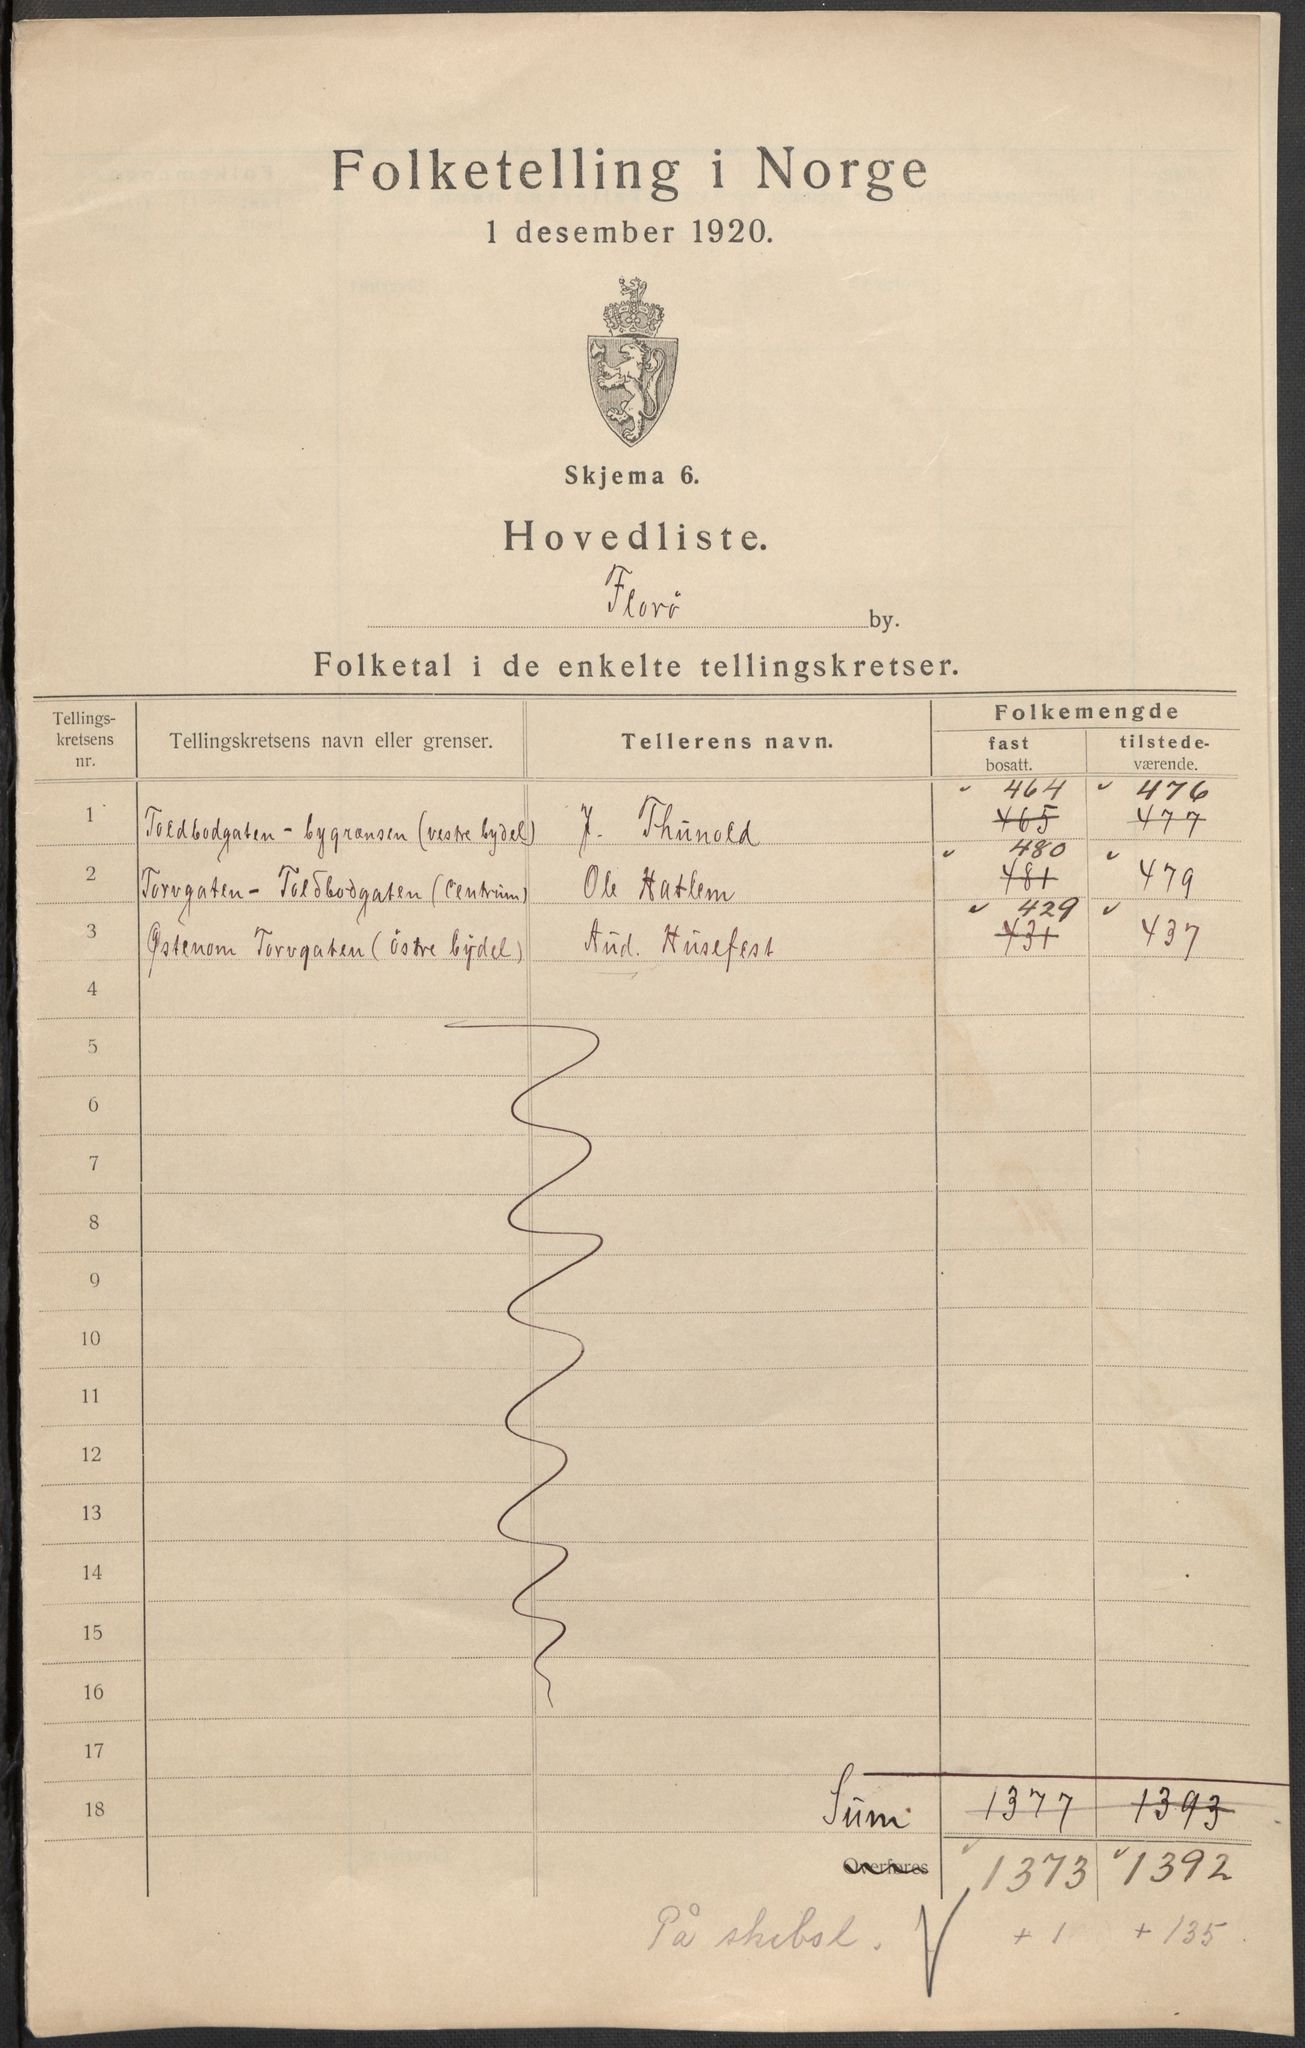 Folketelling i Norge
1 desember 1920.
Skjema 6.
Hovedliste.
Florö by.
Folketal i de enkelte tellingskretser.
Tellings-kretsens nr. Tellingskretsens navn eller grenser. Tellerens navn. Folkemengde
fast bosatt. tilstede-værende.
464 476
1 Toldbodgaten - bygrænsen (vestre bydel) J. Thunold 465 477
480
2 Torvgaten - Toldbodgaten (Centrum) Ole Hatlem 481 479
429
3 Østenom Torvgaten (östre bydel) And. Husefest 431 437
4
5
6
7
8
9
10
11
12
13
14
15
16
17
18 Sum 1377 1393
Overføres 1373 1392
På skibsl. + 1 + 135